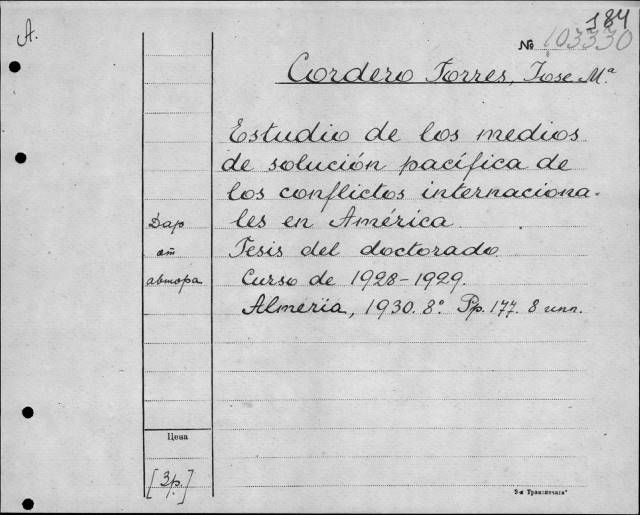 A.
184
№ 103330
Cordero Torres, Jose Mª
Estudio de los medios
de solución pacífica de
los conflictos internaciona-
les en América
Tesis del doctorado
Curso de 1928-1929.
Almeria, 1930. 8º. Pp. 177. 8 unn.
Дар
от
автора
Цена
[3р.]
3-я Транспечать